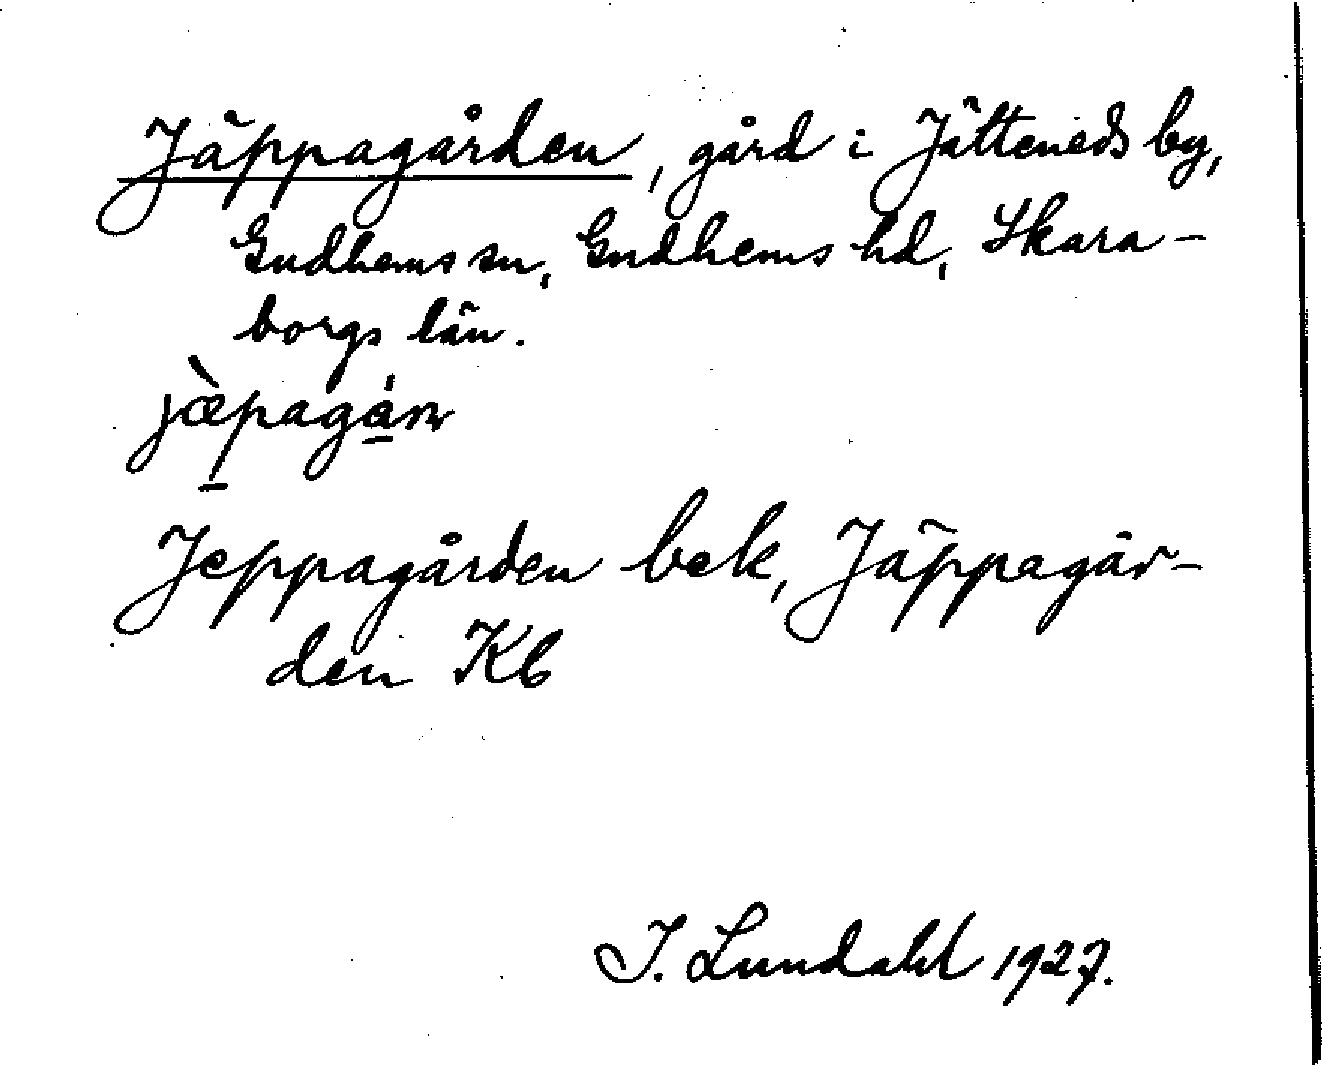 Jäppagården, gård i Jätteneds by,
Gudhems sn, Gudhems hd, Skara-
borgs län.
jæ̀pagá̱n
Jeppagården bek, Jäppagår-
den Kb
I. Lundahl 1927.